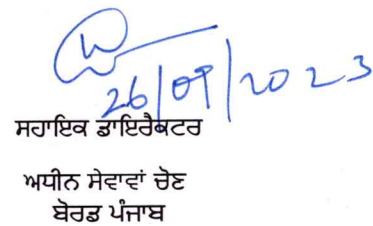 26/09/2023
ਸਹਾਇਕ ਡਾਇਰੈਕਟਰ
ਅਧੀਨ ਸੇਵਾਵਾਂ ਚੋਣ
ਬੋਰਡ ਪੰਜਾਬ